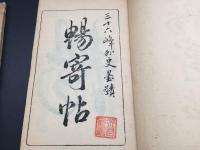 三十六峰外史墨蹟
暢寄帖